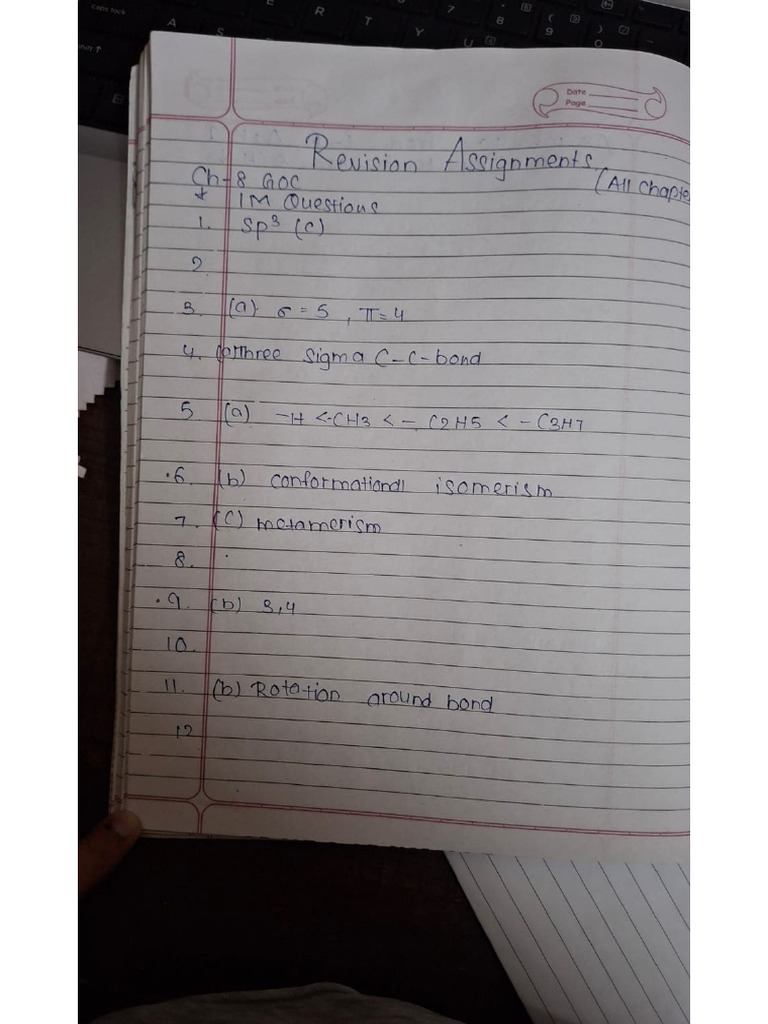 Caps lock
A
S
E
R
T
Y
U
7
8
9
0
Date
Page
Revision Assignments
(All Chapte
Ch-8 GOC
* 1M Questions
1. Sp³ (c)
2
3. (a) σ = 5, π = 4
4. three sigma C-C-bond
5 (a) -H < -CH3 < - C2H5 < - C3H7
.6. (b) conformational isomerism
7. (C) metamerism
8.
.9. (b) 3,4
10.
11. (b) Rotation around bond
12